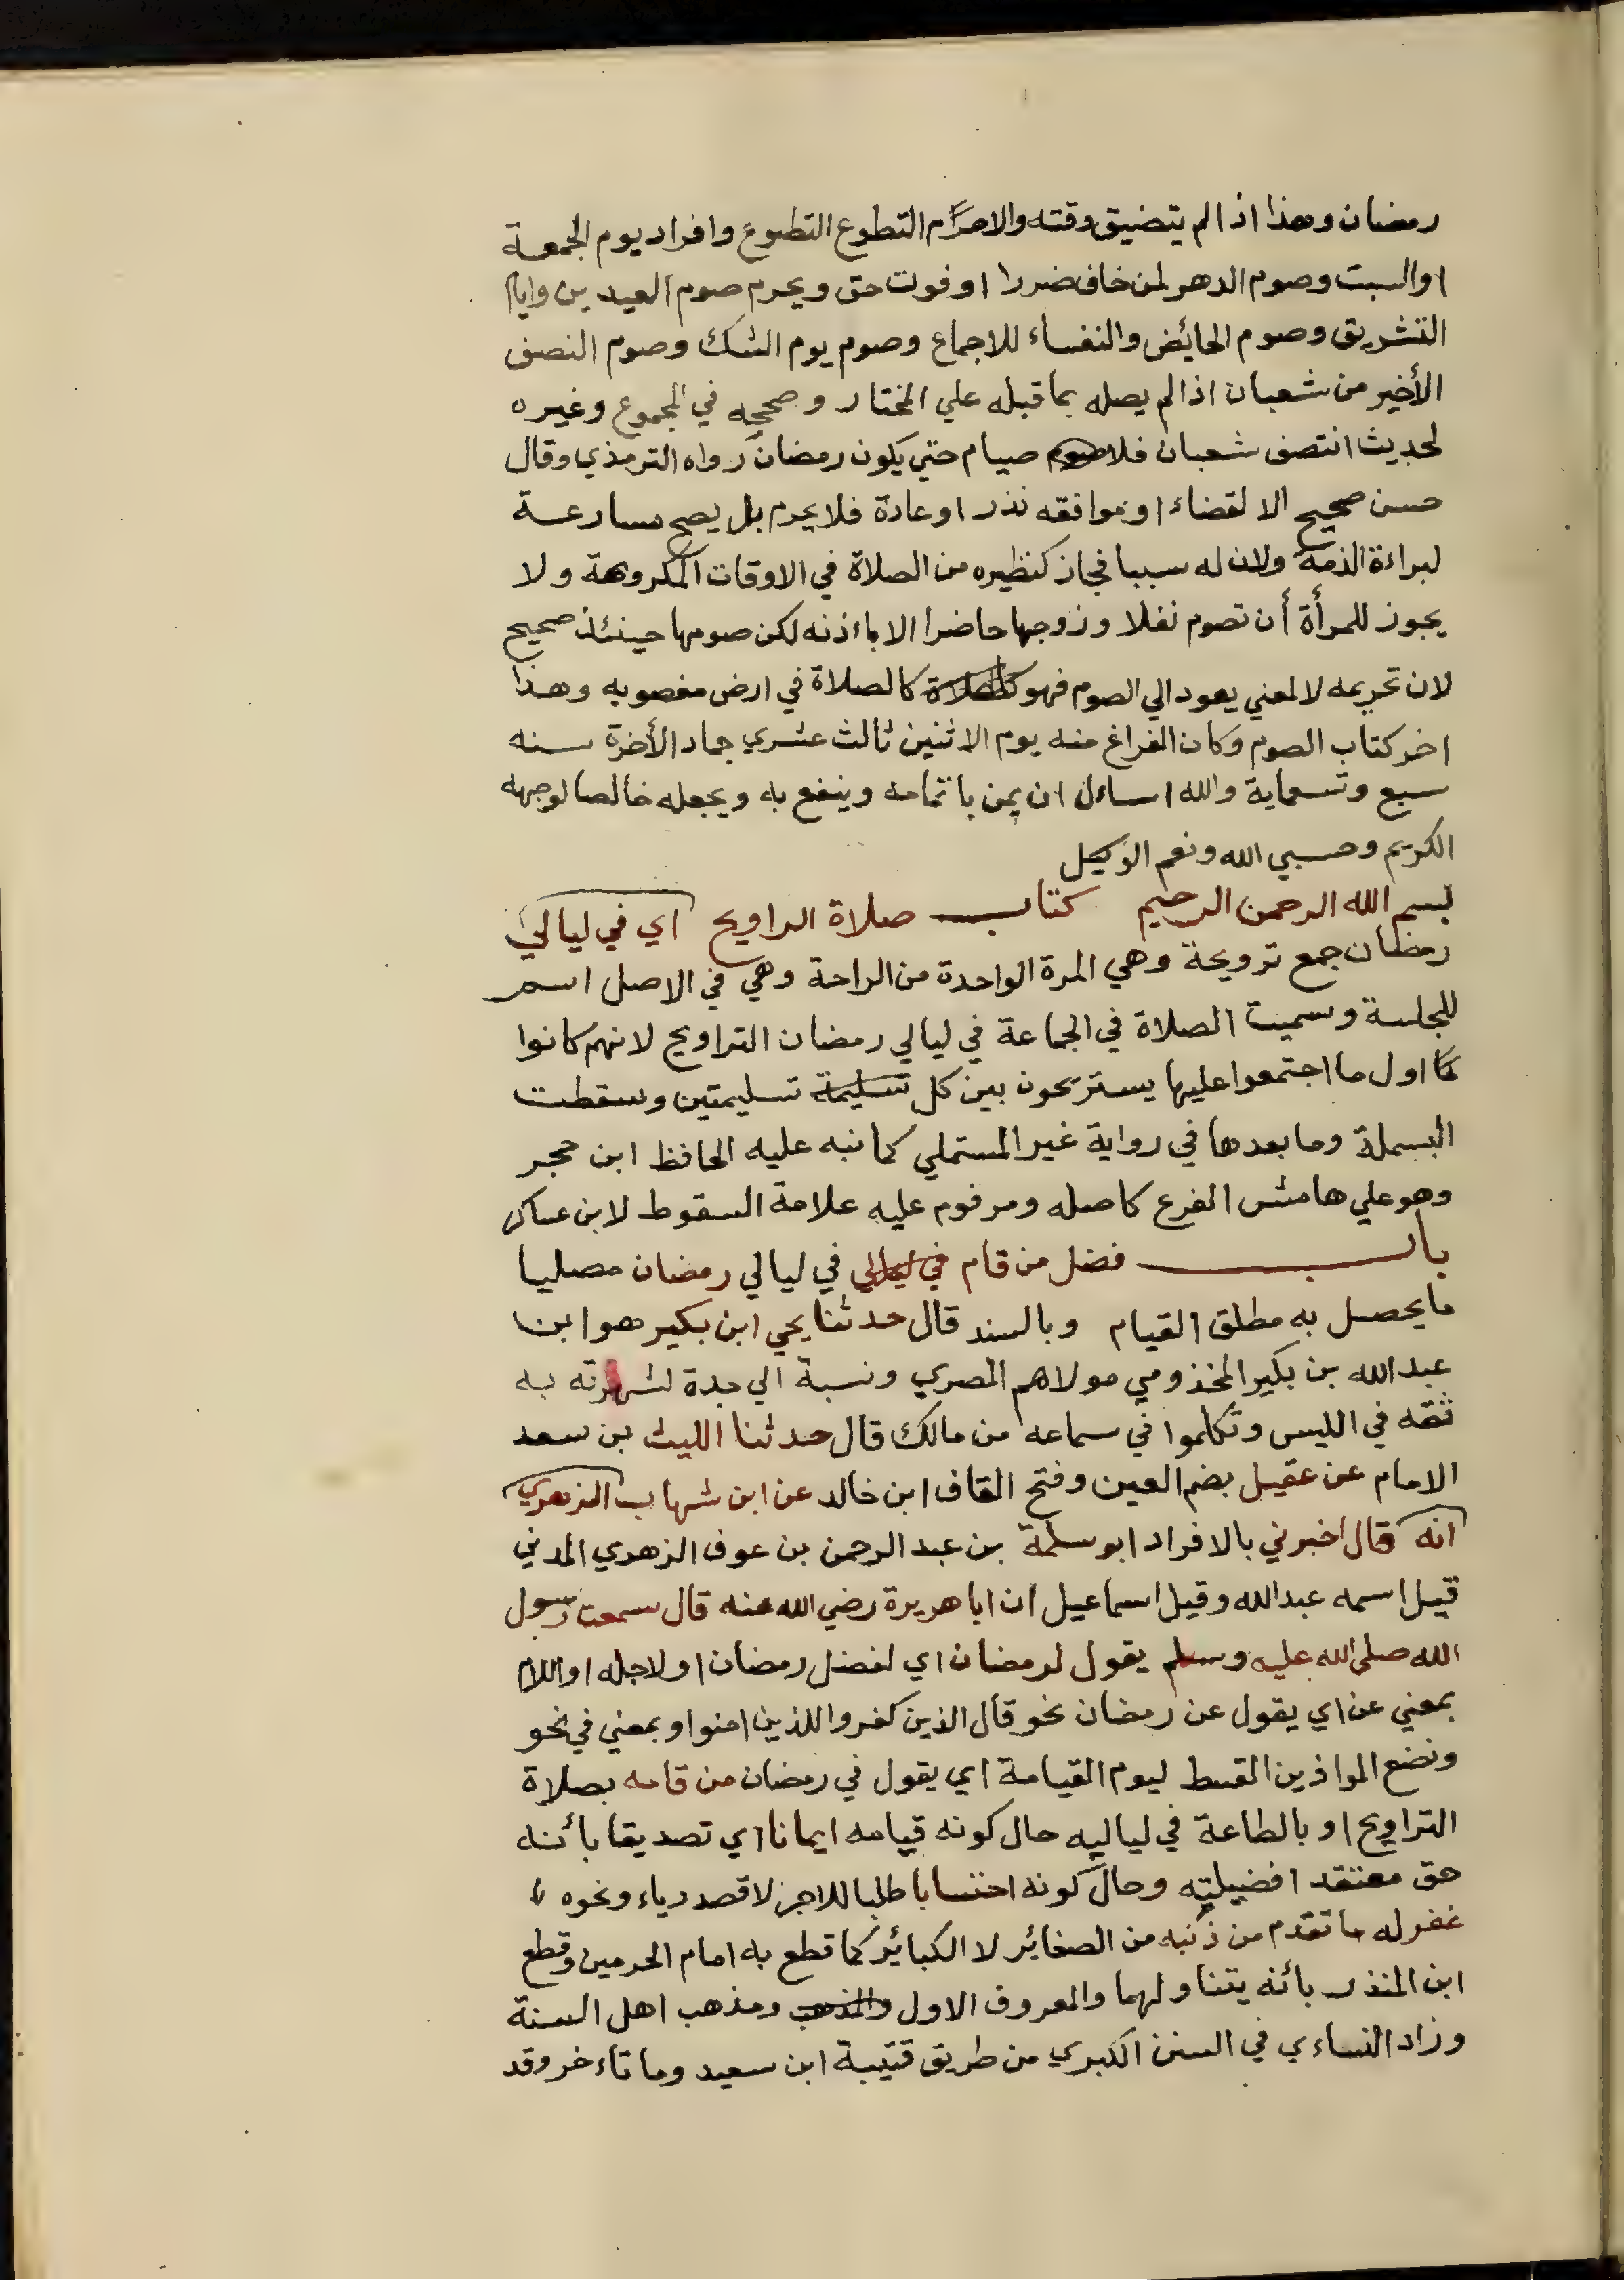 رمضان وهذا اذا لم يتضيق وقته والاحرم التطوع التطوع وافراد يوم الجمعة
او السبت وصوم الدهر لمن خاف ضررا او فوت حق ويحرم صوم العيدين وايام
التشريق وصوم الحائض والنفساء للاجماع وصوم يوم الشك وصوم النصف
الأخير من شعبان اذا لم يصله بما قبله علي المختار وصححه في المجموع وغيره
لحديث انتصف شعبان فلا صوم صيام حتي يكون رمضان رواه الترمذي وقال
حسن صحيح الا لقضاء او موافقه نذر او عادة فلا يحرم بل يصح مسارعة
لبراءة الذمة ولان له سببا فجاز كنظيره من الصلاة في الاوقات المكروهة ولا
يجوز للمرأة أن تصوم نفلا وزوجها حاضرا الا باءذنه لكن صومها حينئذ صحيح
لان تحريمه لا لمعني يعود الي الصوم فهو كالصلاة كالصلاة في ارض مغصوبه وهذا
اخر كتاب الصوم وكان الفراغ منه يوم الاثنين ثالث عشري جماد الأخرة سنه
سبع وتسعماية والله اساءل ان يمن باتمامه وينفع به ويجعله خالصا لوجهه
الكريم وحسبي الله ونعم الوكيل
بسم الله الرحمن الرحيم كتاب صلاة الراويح اي في ليالي
رمضان جمع ترويحة وهي المرة الواحدة من الراحة وهي في الاصل اسم
للجلسة وسميت الصلاة في الجماعة في ليالي رمضان التراويح لانهم كانوا
كما اول ما اجتمعوا عليها يستريحون بين كل تسليمة تسليمتين وسقطت
البسملة وما بعدها في رواية غير المستملي كما نبه عليه الحافظ ابن حجر
وهو علي هامش الفرع كاصله ومرقوم عليه علامة السقوط لابن عساكر
باب فضل من قام في ليالي في ليالي رمضان مصليا
ما يحصل به مطلق القيام وبالسند قال حدثنا يحي ابن بكير هو ابن
عبد الله بن بكير المخذومي مولاهم المصري ونسبة الي جدة لشهرته به
ثقه في الليس وتكلموا في سماعه من مالك قال حدثنا الليث بن سعد
الامام عن عقيل بضم العين وفتح القاف ابن خالد عن ابن شهاب الزهري
انه قال اخبرني بالافراد ابو سلمة بن عبد الرحمن بن عوف الزهري المدني
قيل اسمه عبد الله وقيل اسماعيل ان ابا هريرة رضي الله عنه قال سمعت رسول
الله صلى الله عليه وسلم يقول لرمضان اي لفضل رمضان او لاجله او اللام
بمعني عن اي يقول عن رمضان نحو قال الذين كفروا للذين امنوا وبمعني في نحو
ونضع المواذين القسط ليوم القيامة اي يقول في رمضان من قامه بصلاة
التراويح او بالطاعة في لياليه حال كونه قيامه ايمانا اي تصديقا بأنه
حق معتقد افضيليته وحال كونه احتسابا طلبا للاجر لا قصد رياء ونحوه
غفر له ما تقدم من ذنبه من الصغائر لا الكبائر كما قطع به امام الحرمين وقطع
ابن المنذر بائنه يتناولهما والمعروف الاول والمذهب ومذهب اهل السنة
وزاد النساءي في السنن الكبري من طريق قتيبة ابن سعيد وما تاءخر وقد